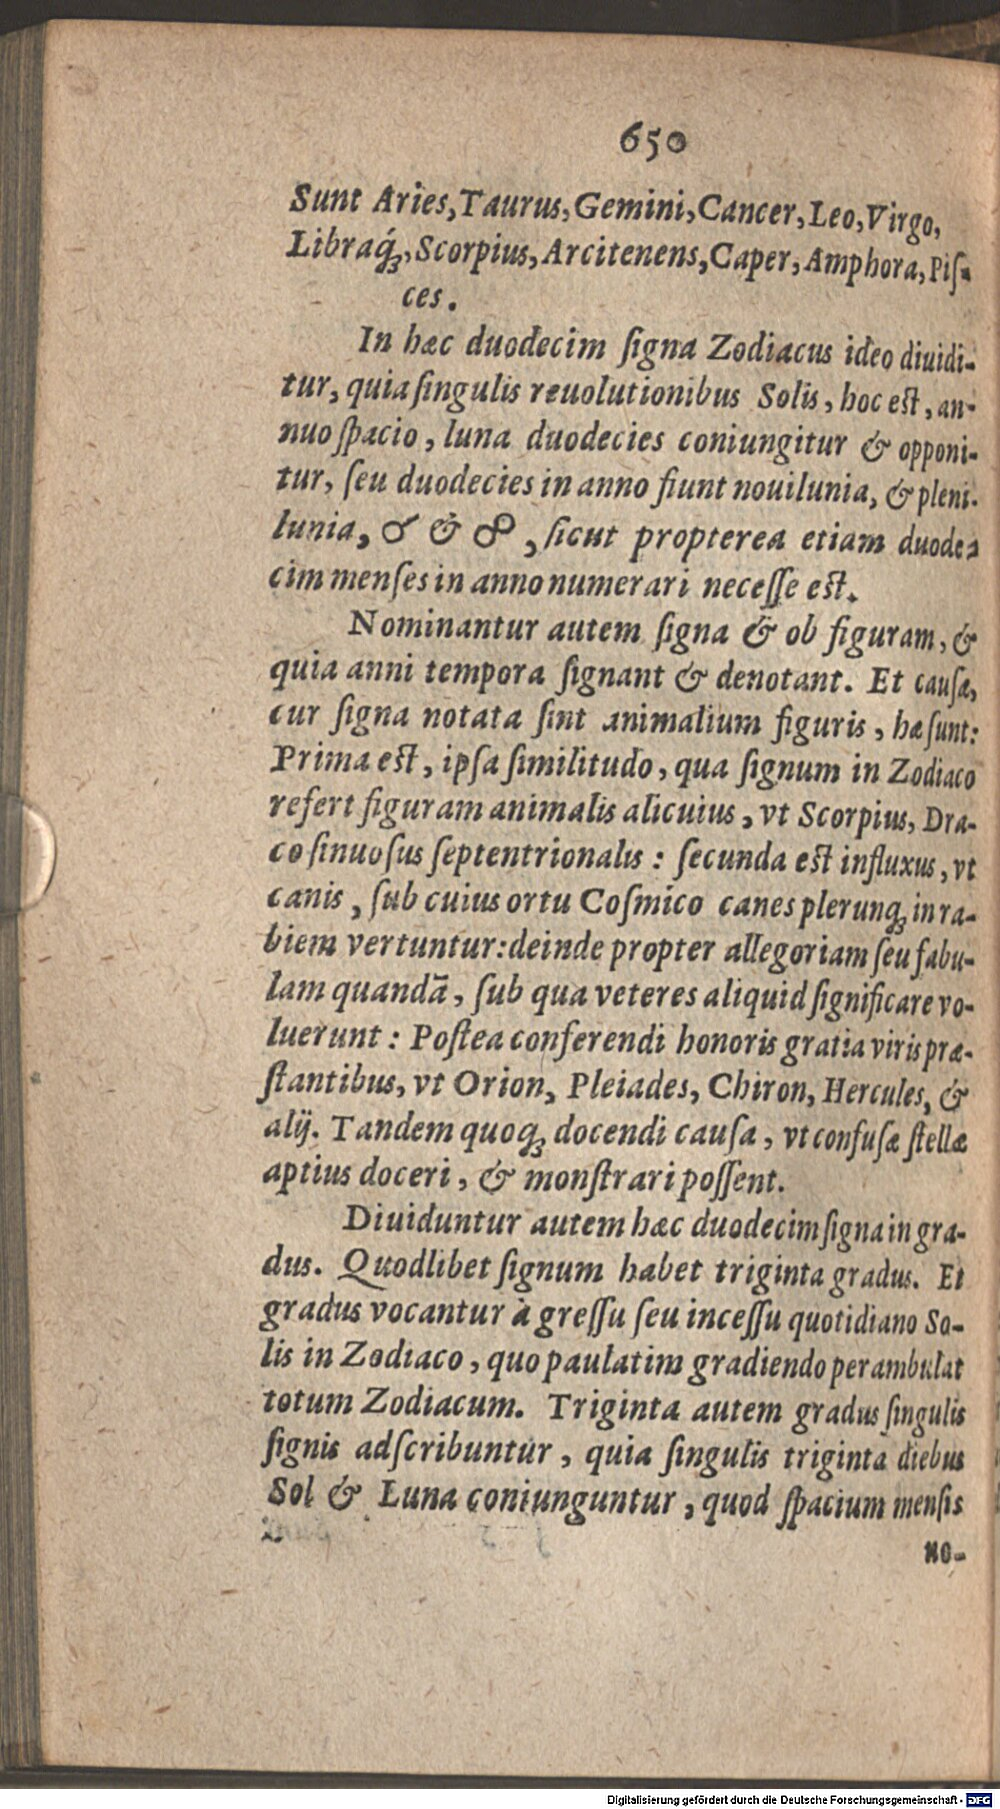 650
Sunt Aries, Taurus, Gemini, Cancer, Leo, Virgo,
Libraq́ꝫ, Scorpius, Arcitenens, Caper, Amphora, Piſ-
ces.
In hæc duodecim ſigna Zodiacus ideo diuidi-
tur, quia ſingulis reuolutionibus Solis, hoc eſt, an-
nuo ſpacio, luna duodecies coniungitur & opponi-
tur, ſeu duodecies in anno fiunt nouilunia, & pleni-
lunia, ☌ & ☍, ſicut propterea etiam duode-
cim menſes in anno numerari neceſſe eſt.
Nominantur autem ſigna & ob figuram, &
quia anni tempora ſignant & denotant. Et cauſæ,
cur ſigna notata ſint animalium figuris, hæ ſunt:
Prima eſt, ipſa ſimilitudo, qua ſignum in Zodiaco
refert figuram animalis alicuius, vt Scorpius, Dra-
co ſinuoſus ſeptentrionalis: ſecunda eſt influxus, vt
canis, ſub cuius ortu Coſmico canes plerunqꝫ in ra-
biem vertuntur: deinde propter allegoriam ſeu fabu-
lam quandā, ſub qua veteres aliquid ſignificare vo-
luerunt: Poſtea conferendi honoris gratia viris præ-
ſtantibus, vt Orion, Pleiades, Chiron, Hercules, &
alij. Tandem quoqꝫ docendi cauſa, vt confuſæ ſtellæ
aptius doceri, & monſtrari poſſent.
Diuiduntur autem hæc duodecim ſigna in gra-
dus. Quodlibet ſignum habet triginta gradus. Et
gradus vocantur à greſſu ſeu inceſſu quotidiano So-
lis in Zodiaco, quo paulatim gradiendo perambulat
totum Zodiacum. Triginta autem gradus ſingulis
ſignis adſcribuntur, quia ſingulis triginta diebus
Sol & Luna coniunguntur, quod ſpacium menſis
no-
Digitalisierung gefördert durch die Deutsche Forschungsgemeinschaft - DFG